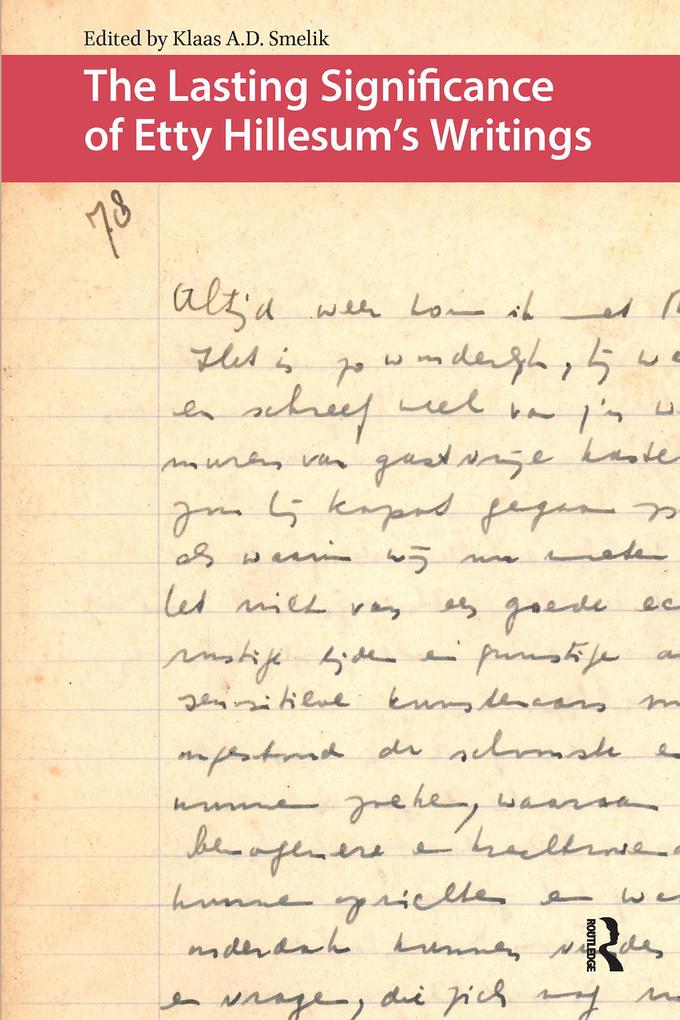 Edited by Klaas A.D. Smelik
The Lasting Significance
of Etty Hillesum's Writings
78
Altijd weer kom ik met
Het is zo wonderlijk, hij wa
en schreef veel van z'n w
muren van gastvrije kaste
zou hij kapot gegaan z
als waarin wij nu moeten
het niet van een goede ec
rustige tijden en gunstige o
sensitieve kunstenaars
ongestoord de schoonste e
kunnen zoeken, waaraan
bewogener en krachtrovend
kunnen oprichten en wa
onderdak kunnen vinden
en vragen, die zich nog n
ROUTLEDGE